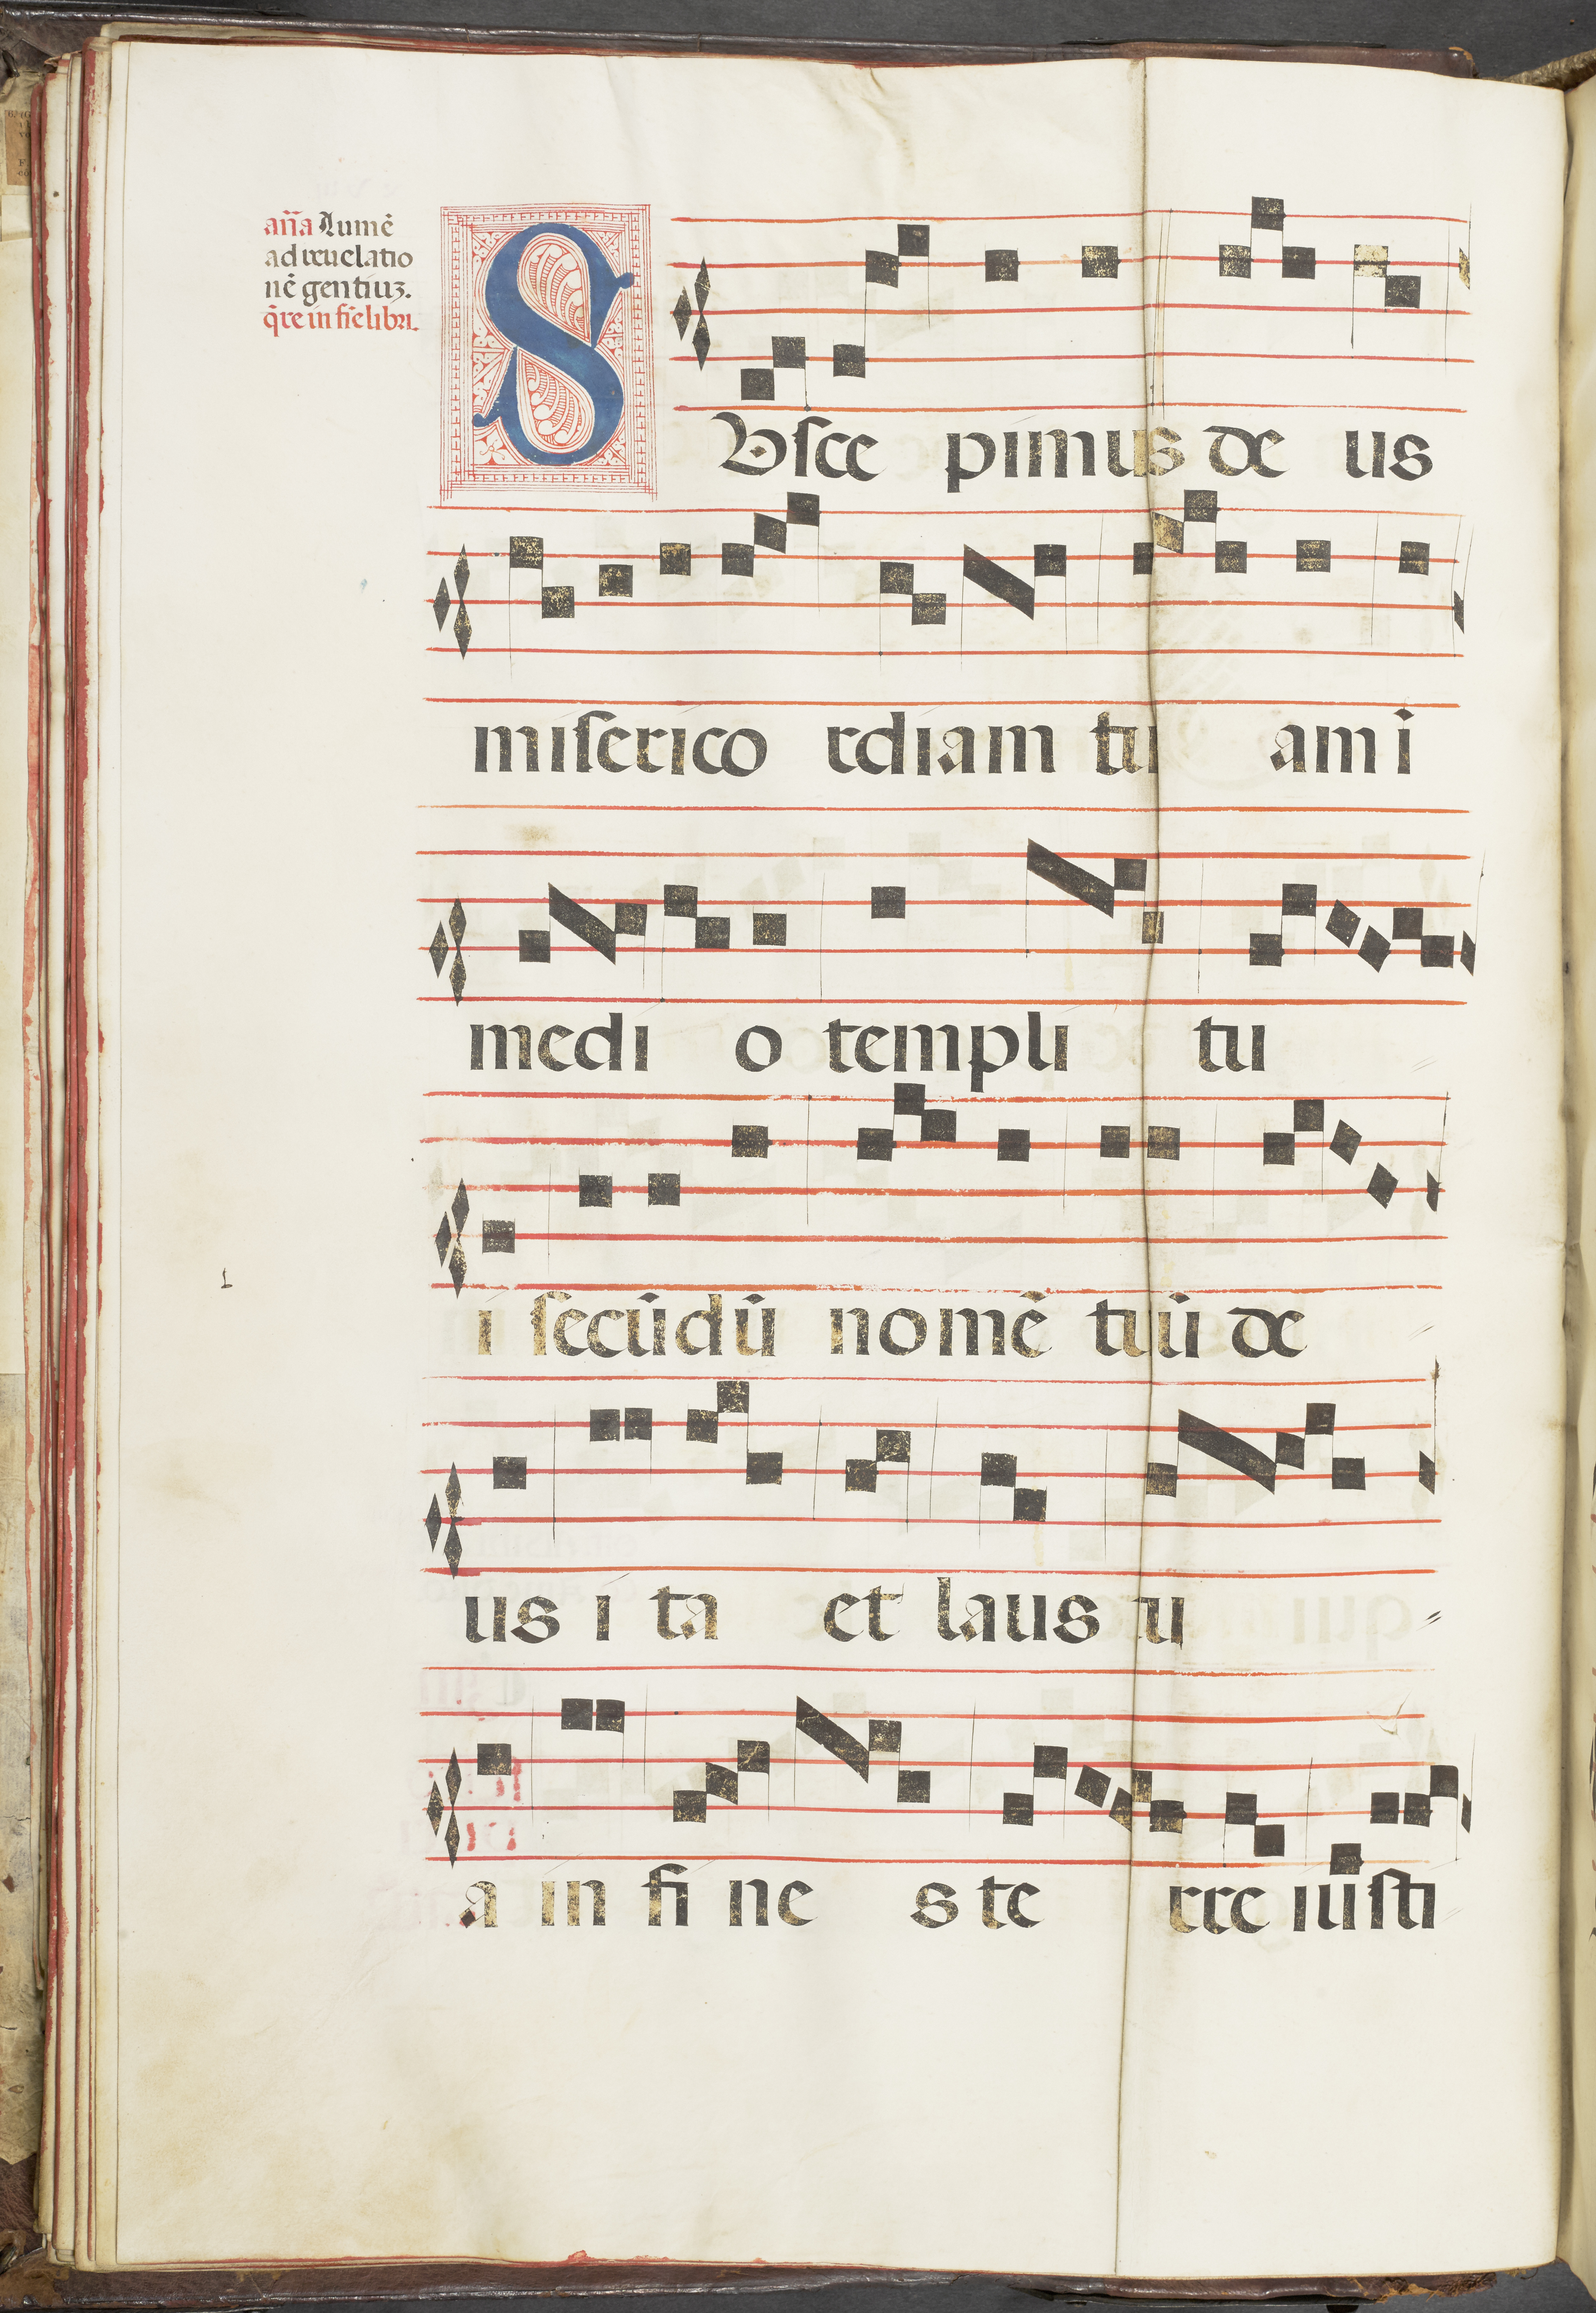 an̄a Lumē
ad reuelatio
nē gentiuꝫ.
q̄re in fīe libri.
SUſce pimus de us
miſerico rdiam tu am i
medi o templi tu
i ſecūdū nomē tuū de
us i ta et laus tu
a in fi ne s te rre iuſti